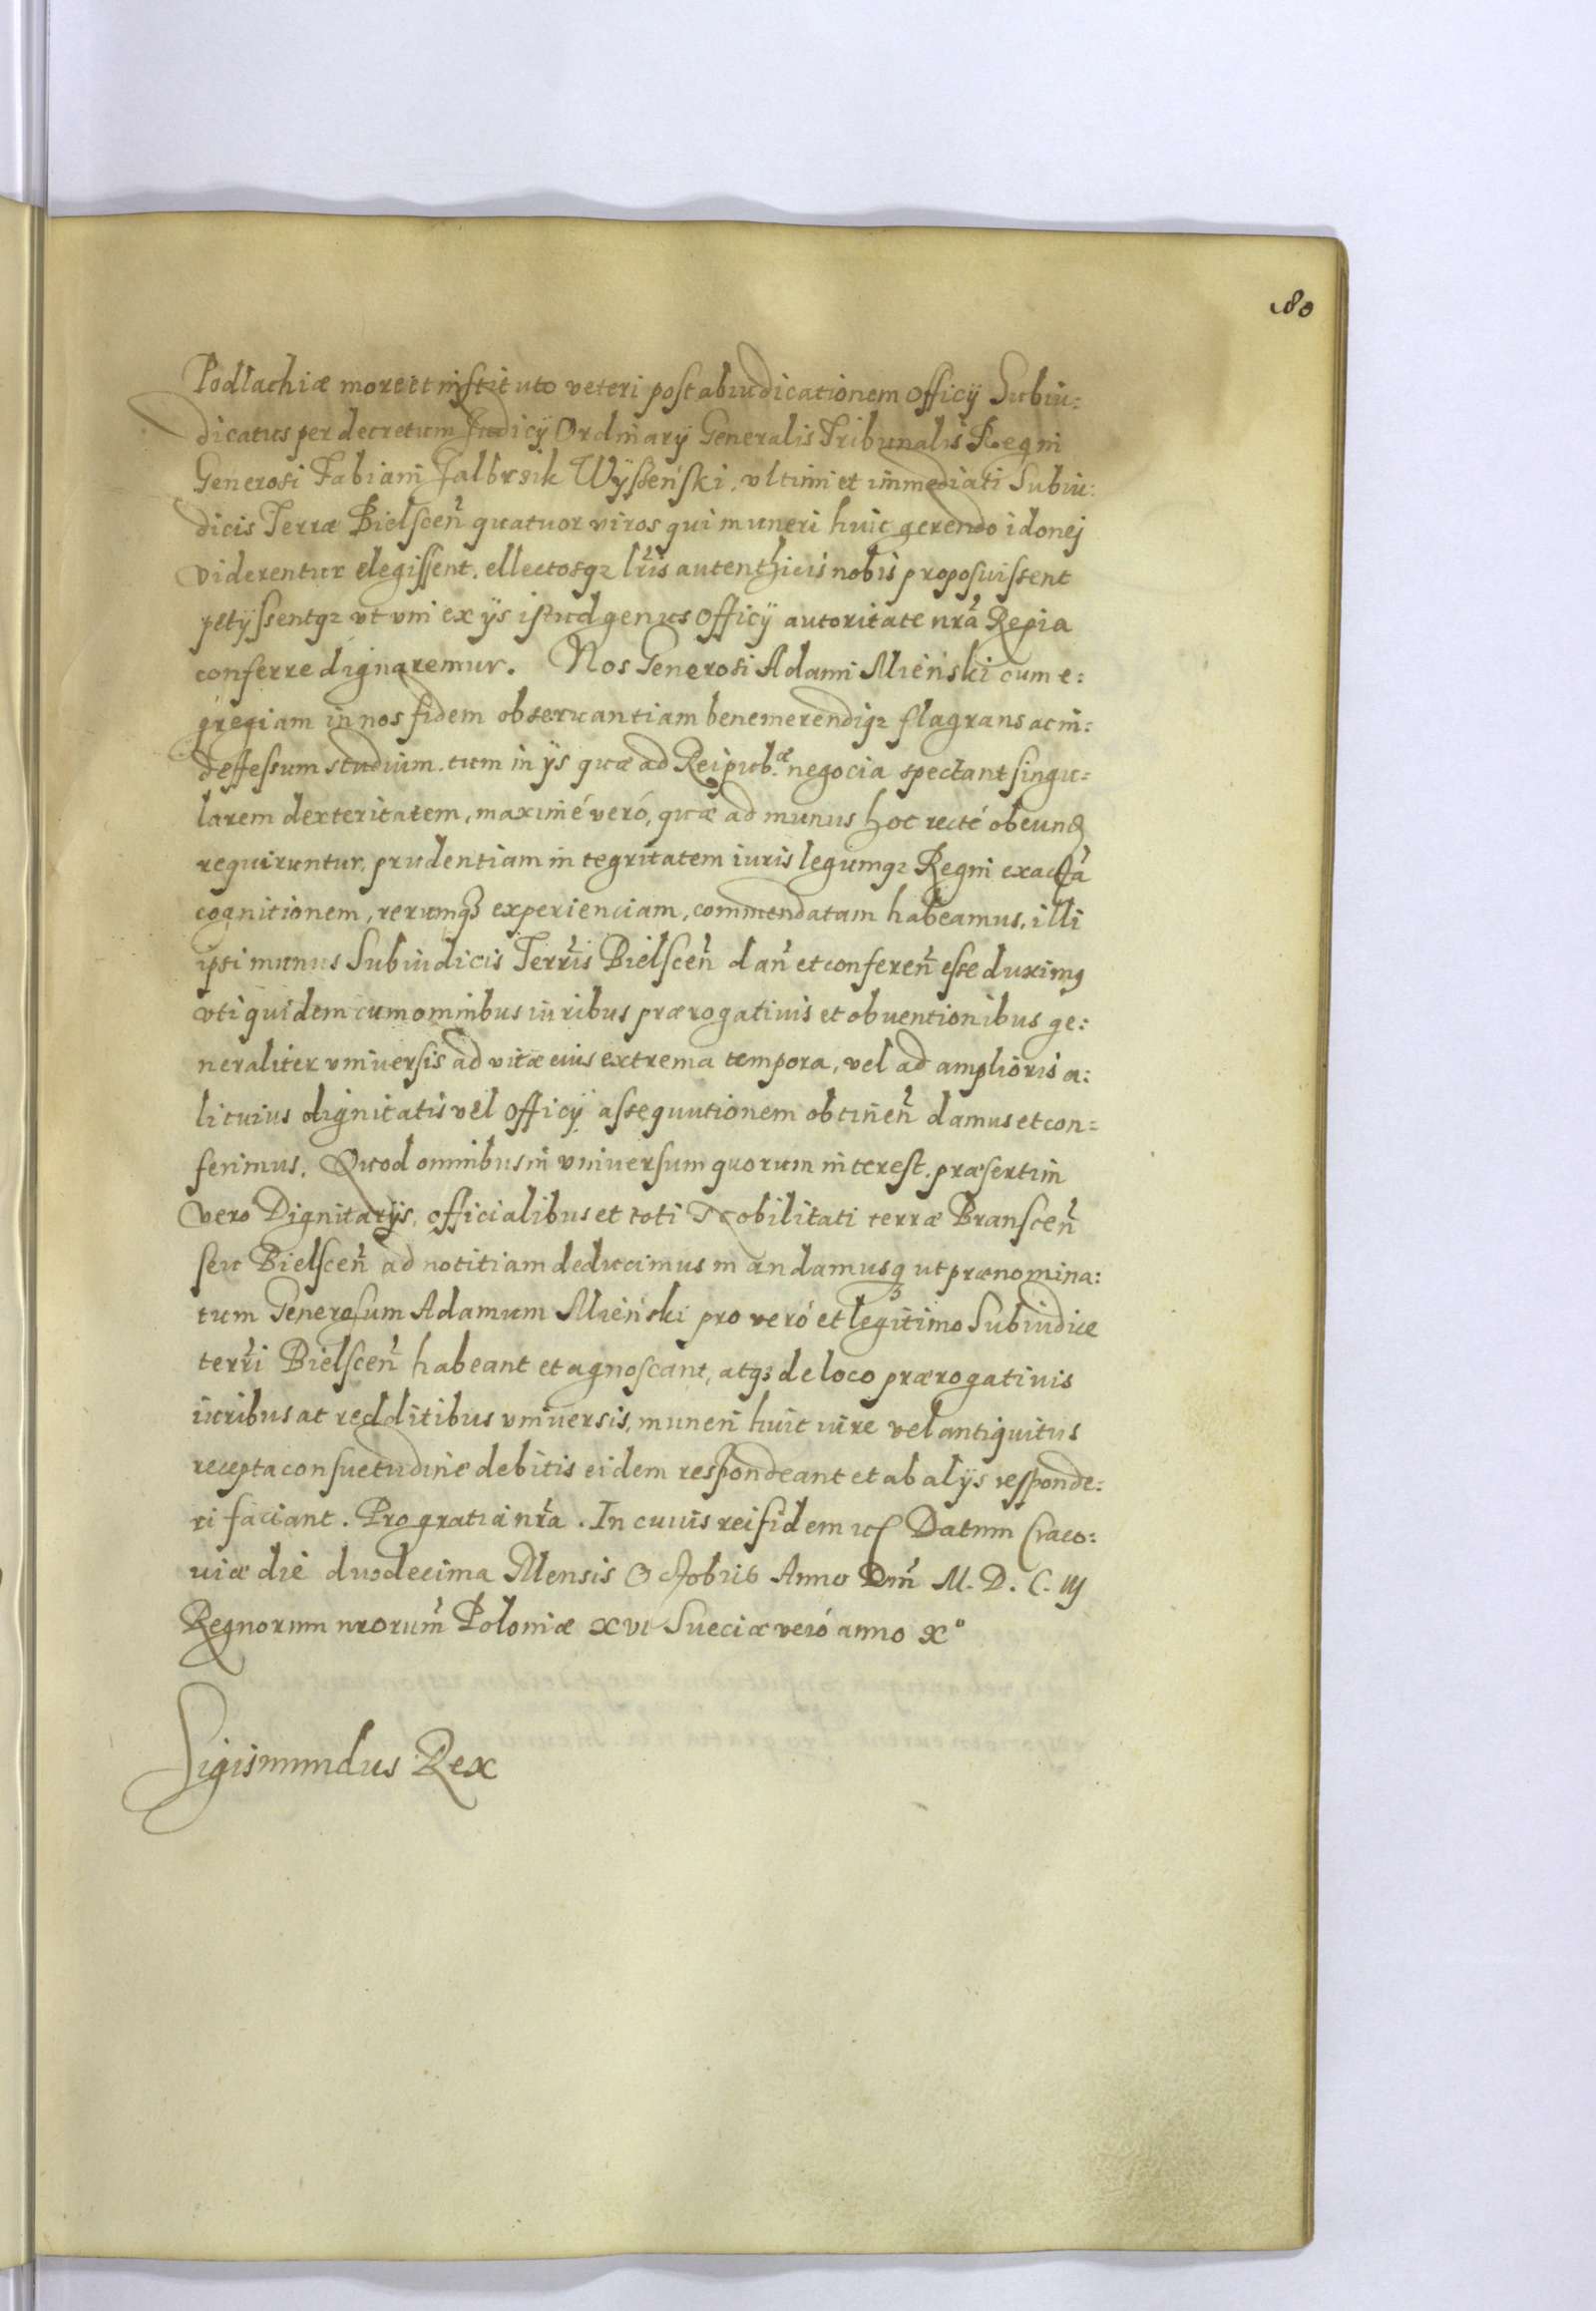 80
Podlachiæ more et instituto veteri post abiudicationem officÿ Subiu:
dicatus per decretum Judicÿ Ordinarÿ Generalis Tribunalis Regni
Generosi Fabiani Falbrsik Wÿszeński, vltimi et immediati Subiu:
dicis Terræ Bielsceñ quatuor viros qui muneri huic gerendo idonej
viderentur elegissent, ellectosqꝫ lr̃is autenthicis nobis proposuissent
petÿssentqꝫ vt vni ex ÿs istud genus officÿ autoritate nr̃a Regia
conferre dignaremur. Nos Generosi Adami Mieński cum e:
gregiam in nos fidem obseruantiam benemerendiqꝫ flagrans ac in:
deffessum studium, tum in ÿs quæ ad Reipub:æ negocia spectant singu=
larem dexteritatem, maximé veró, quæ ad munus hoc recté obeund
requiruntur, prudentiam integritatem iuris legumqꝫ Regni exactã
cognitionem, rerumqꝫ experienciam, commendatam habeamus, illi
ipsi munus Subiudicis Terr̃is Bielsceñ dañ et confereñ esse duximꝰ
vti quidem cum omnibus iuribus prærogatiuis et obuentionibus ge:
neraliter vniuersis ad vitæ eius extrema tempora, vel ad amplioris a:
licuius dignitatis vel officÿ assequutionem obtineñ damus et con=
ferimus. Quod omnibus in vniuersum quorum interest, præsertim
vero Dignitarÿs, officialibus et toti Nobilitati terræ Bransceñ
seu Bielsceñ ad notitiam deducimus mandamusqꝫ ut prænomina:
tum Generosum Adamum Mieński pro veró et legitimo Subiudice
terr̃i Bielsceñ habeant et agnoscant, atqꝫ de loco prærogatiuis
iuribus ac redditibus vniuersis, muneri huic iure vel antiquitus
recepta consuetudine debitis eidem respondeant et ab alÿs responde:
ri faciant. Pro gratia nr̃a. In cuius rei fidem etc Datum Craco:
uiæ die duodecima Mensis Octobris Anno Dñi M. D. C. IIJ
Regnorum nrorum̃ Poloniæ XVI Sueciæ veró anno X°
Sigismundus Rex